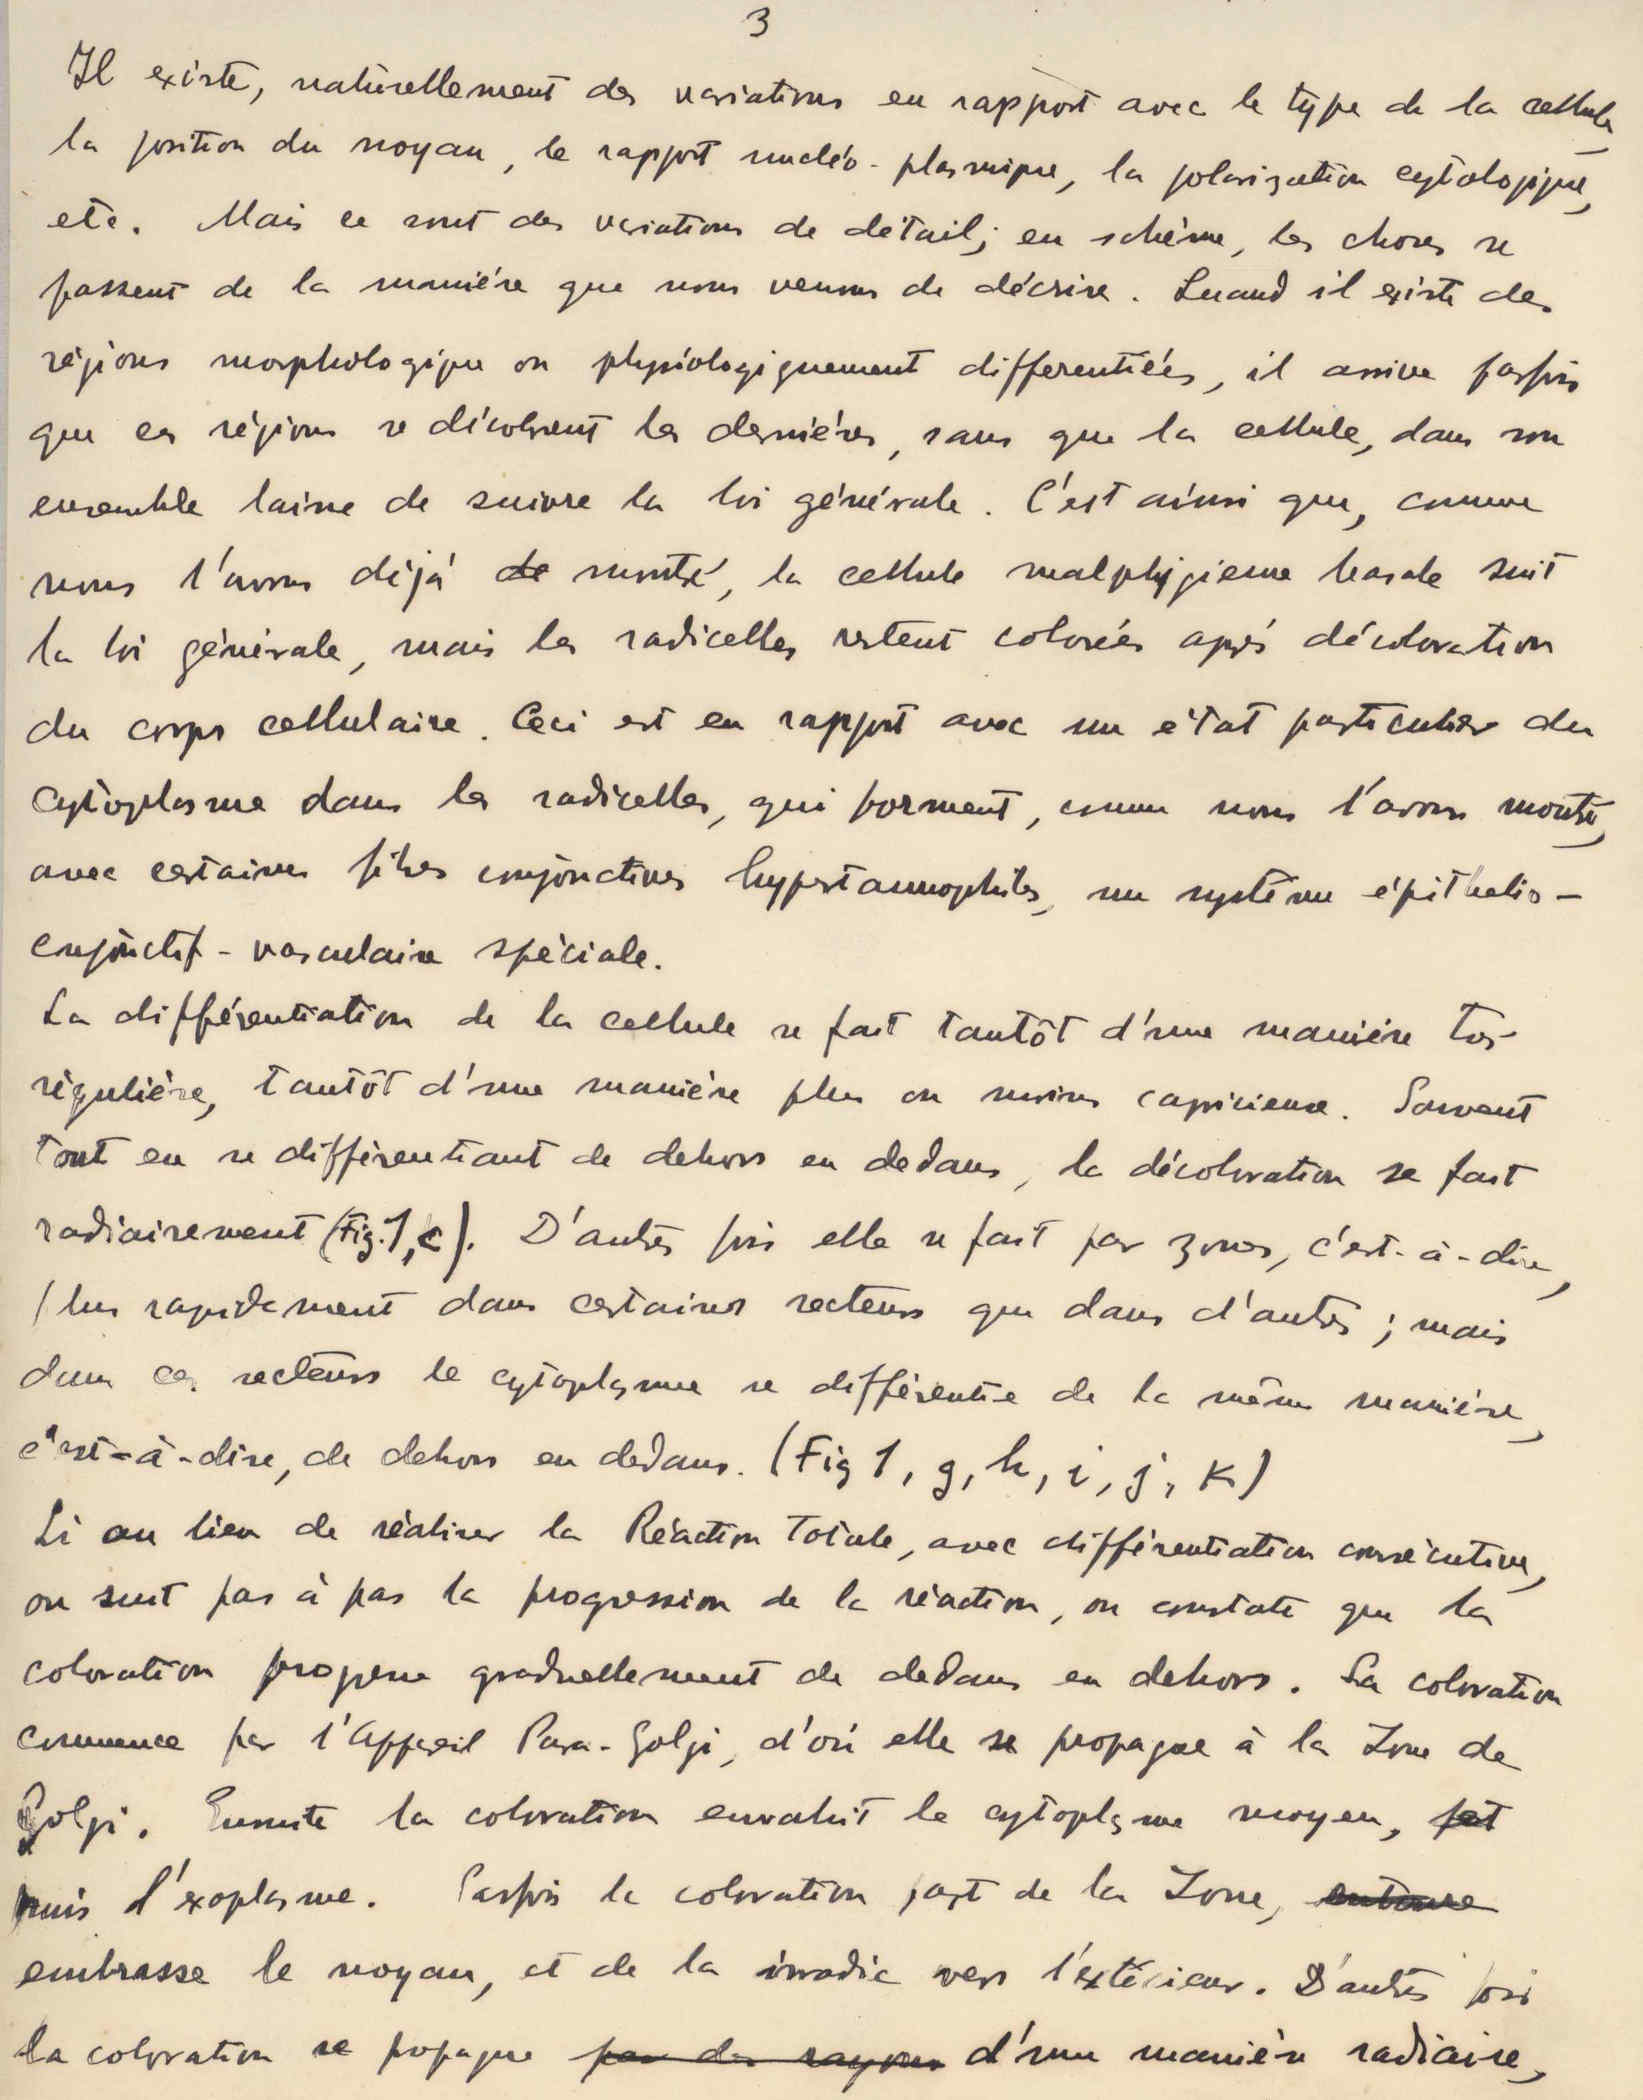 3
Il existe, naturellement des variations en rapport avec le type de la cellule,
la position du noyau, le rapport nucléo-plasmique, la polarisation cytologique,
etc. Mais ce sont des variations de détail; en schème, les choses se
passent de la maniére que nous venons de décrire. Quand il existe des
régions morphologique ou physiologiquement differentiées, il arrive parfois
que ces régions se décolorent les derniéres, sans que la cellule, dans son
ensemble laisse de suivre la loi générale. C'est ainsi que, comme
nous l'avons déjá de montré, la cellule malphygienne basale suit
la loi générale, mais les radicelles restent colorées aprés décoloration
du corps cellulaire. Ceci est en rapport avec un état particulier du
cytoplasme dans les radicelles, qui forment, comme nous l'avons montré,
avec certaines fibres conjonctives hypertannophiles, un systéme épithelio-
conjonctif-vasculaire spéciale.
La différentiation de la cellule se fait tantôt d'une maniére tres
réguliére, tantôt d'une maniére plus ou moins capricieuse. Souvent
tout en se différentiant de dehors en dedans, la décoloration se fait
radiairement (Fig. 1, c). D'autres fois elle se fait par zones, c'est-à-dire,
plus rapidement dans certaines secteurs que dans d'autres; mais
dans ces secteurs le cytoplasme se différentie de la même maniére,
c'est-à-dire, de dehors en dedans. (Fig 1, g, h, i, j, k)
Si au lieu de réaliser la Réaction Totale, avec différentiation consécutive,
on suit pas à pas la progression de la réaction, on constate que la
coloration progresse graduellement de dedans en dehors. La coloration
commence par l'Appareil Para-Golgi, d'oú elle se propague à la Zone de
Golgi. Ensuite la coloration envahit le cytoplasme moyen, pet
puis l'exoplasme. Parfois la coloration part de la Zone, entoure
embrasse le noyau, et de la irradie vers l'extérieur. D'autres fois
la coloration se propague par des rayons d'une maniére radiaire,